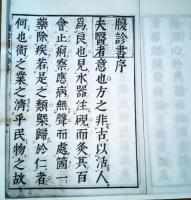 腹診書序
夫醫者意也方之非古以活人
爲良也見水器注硯而灸其百
會止痢察應病無聲而處箇一
藥除疾若是之類槩歸於仁者
何也術之業之濟乎民物之故